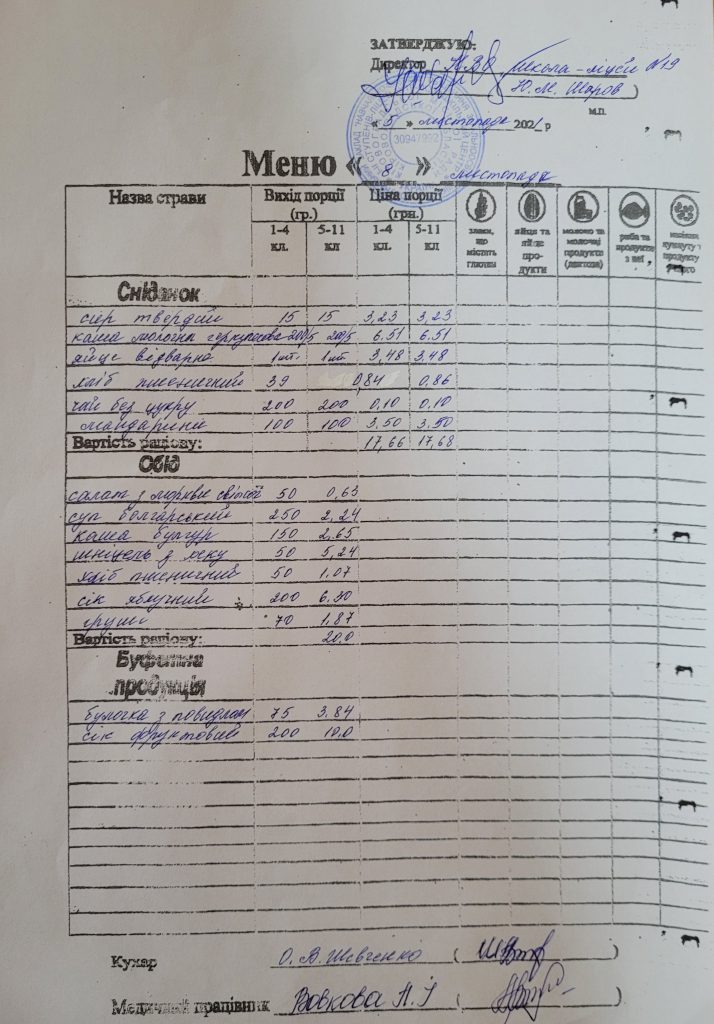 ЗАТВЕРДЖУЮ:
Директор НВО Школа-ліцей №19
Ю.М. Шаров )
м.п.
« 5 » листопада 2021 р
30947992
Меню « 8 » листопада
Назва страви Вихід порції (гр.) Ціна порції (грн.) злаки, що містять глютен яйця та яйце продукти молоко та молочні продукти (лактоза) риба та продукти з неї насіння кунжуту і продукту
1-4 кл. 5-11 кл 1-4 кл. 5-11 кл
Сніданок
сир твердий 15 15 3,23 3,23
каша молочна геркулесова 200/5 200/5 6.51 6.51
яйце відварне 1шт. 1шт 3,48 3,48
хліб пшеничний 39 0,84 0,86
чай без цукру 200 200 0,10 0,10
мандарини 100 100 3,50 3,50
Вартість раціону: 17,66 17,68
Обід
салат з моркви свіжої 50 0,63
суп болгарський 250 2,24
каша булгур 150 2,65
шніцель з хеку 50 5,24
хліб пшеничний 50 1,07
сік яблучний 200 6.30
груші 70 1,87
Вартість раціону: 20,0
Буфетна
продукція
булочка з повидлом 75 3.84
сік фруктовий 200 10.0
Кухар О.В. Шевченко ( )
Медичний працівник Вовкова Л.І ( )